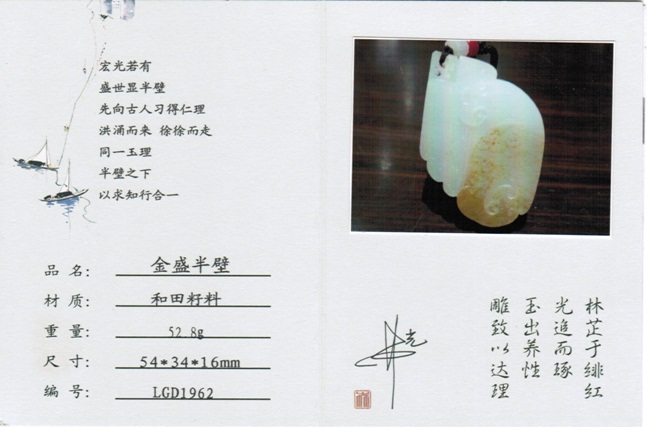 宏光若有
盛世显半壁
先向古人习得仁理
洪涌而来 徐徐而走
同一玉理
半壁之下
以求知行合一
品 名: 金盛半壁
材 质: 和田籽料
重 量: 52.8g
尺 寸: 54*34*16mm
编 号: LGD1962
林芷于绯红
光追而琢
玉出养性
雕致以达理